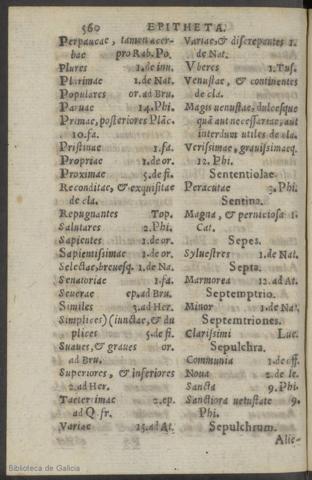 560 EPITHETA.
Perpaucae, tamen acer-
bae pro Rab. Po.
Plures 1. de inu.
Plurimae 1. de Nat.
Populares or. ad Bru.
Paruae 14. Phi.
Primae, posteriores Plāc.
10. fa.
Pristinae 1. fa.
Propriae 1. de or.
Proximae 5. de fi.
Reconditae, & exquisitae
de cla.
Repugnantes Top.
Salutares 2. Phi.
Sapientes 1. de or.
Sapientissimae 1. de or.
Selectae, breuesq. 1. de Na.
Senatoriae 1. fa.
Seuerae ep. ad Bru.
Similes 3. ad Her.
Simplices) (iunctae, & du
plices 5. de fi.
Suaues, & graues or.
ad Bru.
Superiores, & inferiores
2. ad Her.
Taeterimae 2. ep.
ad Q. fr.
Variae 15. ad At.
Variae, & discrepantes 1.
de Nat.
Vberes 1. Tus.
Venustae, & continentes
de cla.
Magis uenustae, dulcesque
quā aut necessariae, aut
interdum utiles de cla.
Verissimae, grauissimaeq.
12. Phi.
Sententiolae.
Peracutae 3. Phi.
Sentina.
Magna, & perniciosa 1.
Cat.
Sepes.
Syluestres 1. de Nat.
Septa.
Marmorea 12. ad At.
Septemptrio.
Minor 1. de Nat.
Septemtriones.
Clarissimi Luc.
Sepulchra.
Communia 1. de off.
Noua 2. de le.
Sancta 9. Phi.
Sanctiora uetustate 9.
Phi.
Sepulchrum.
Alie-
Biblioteca de Galicia